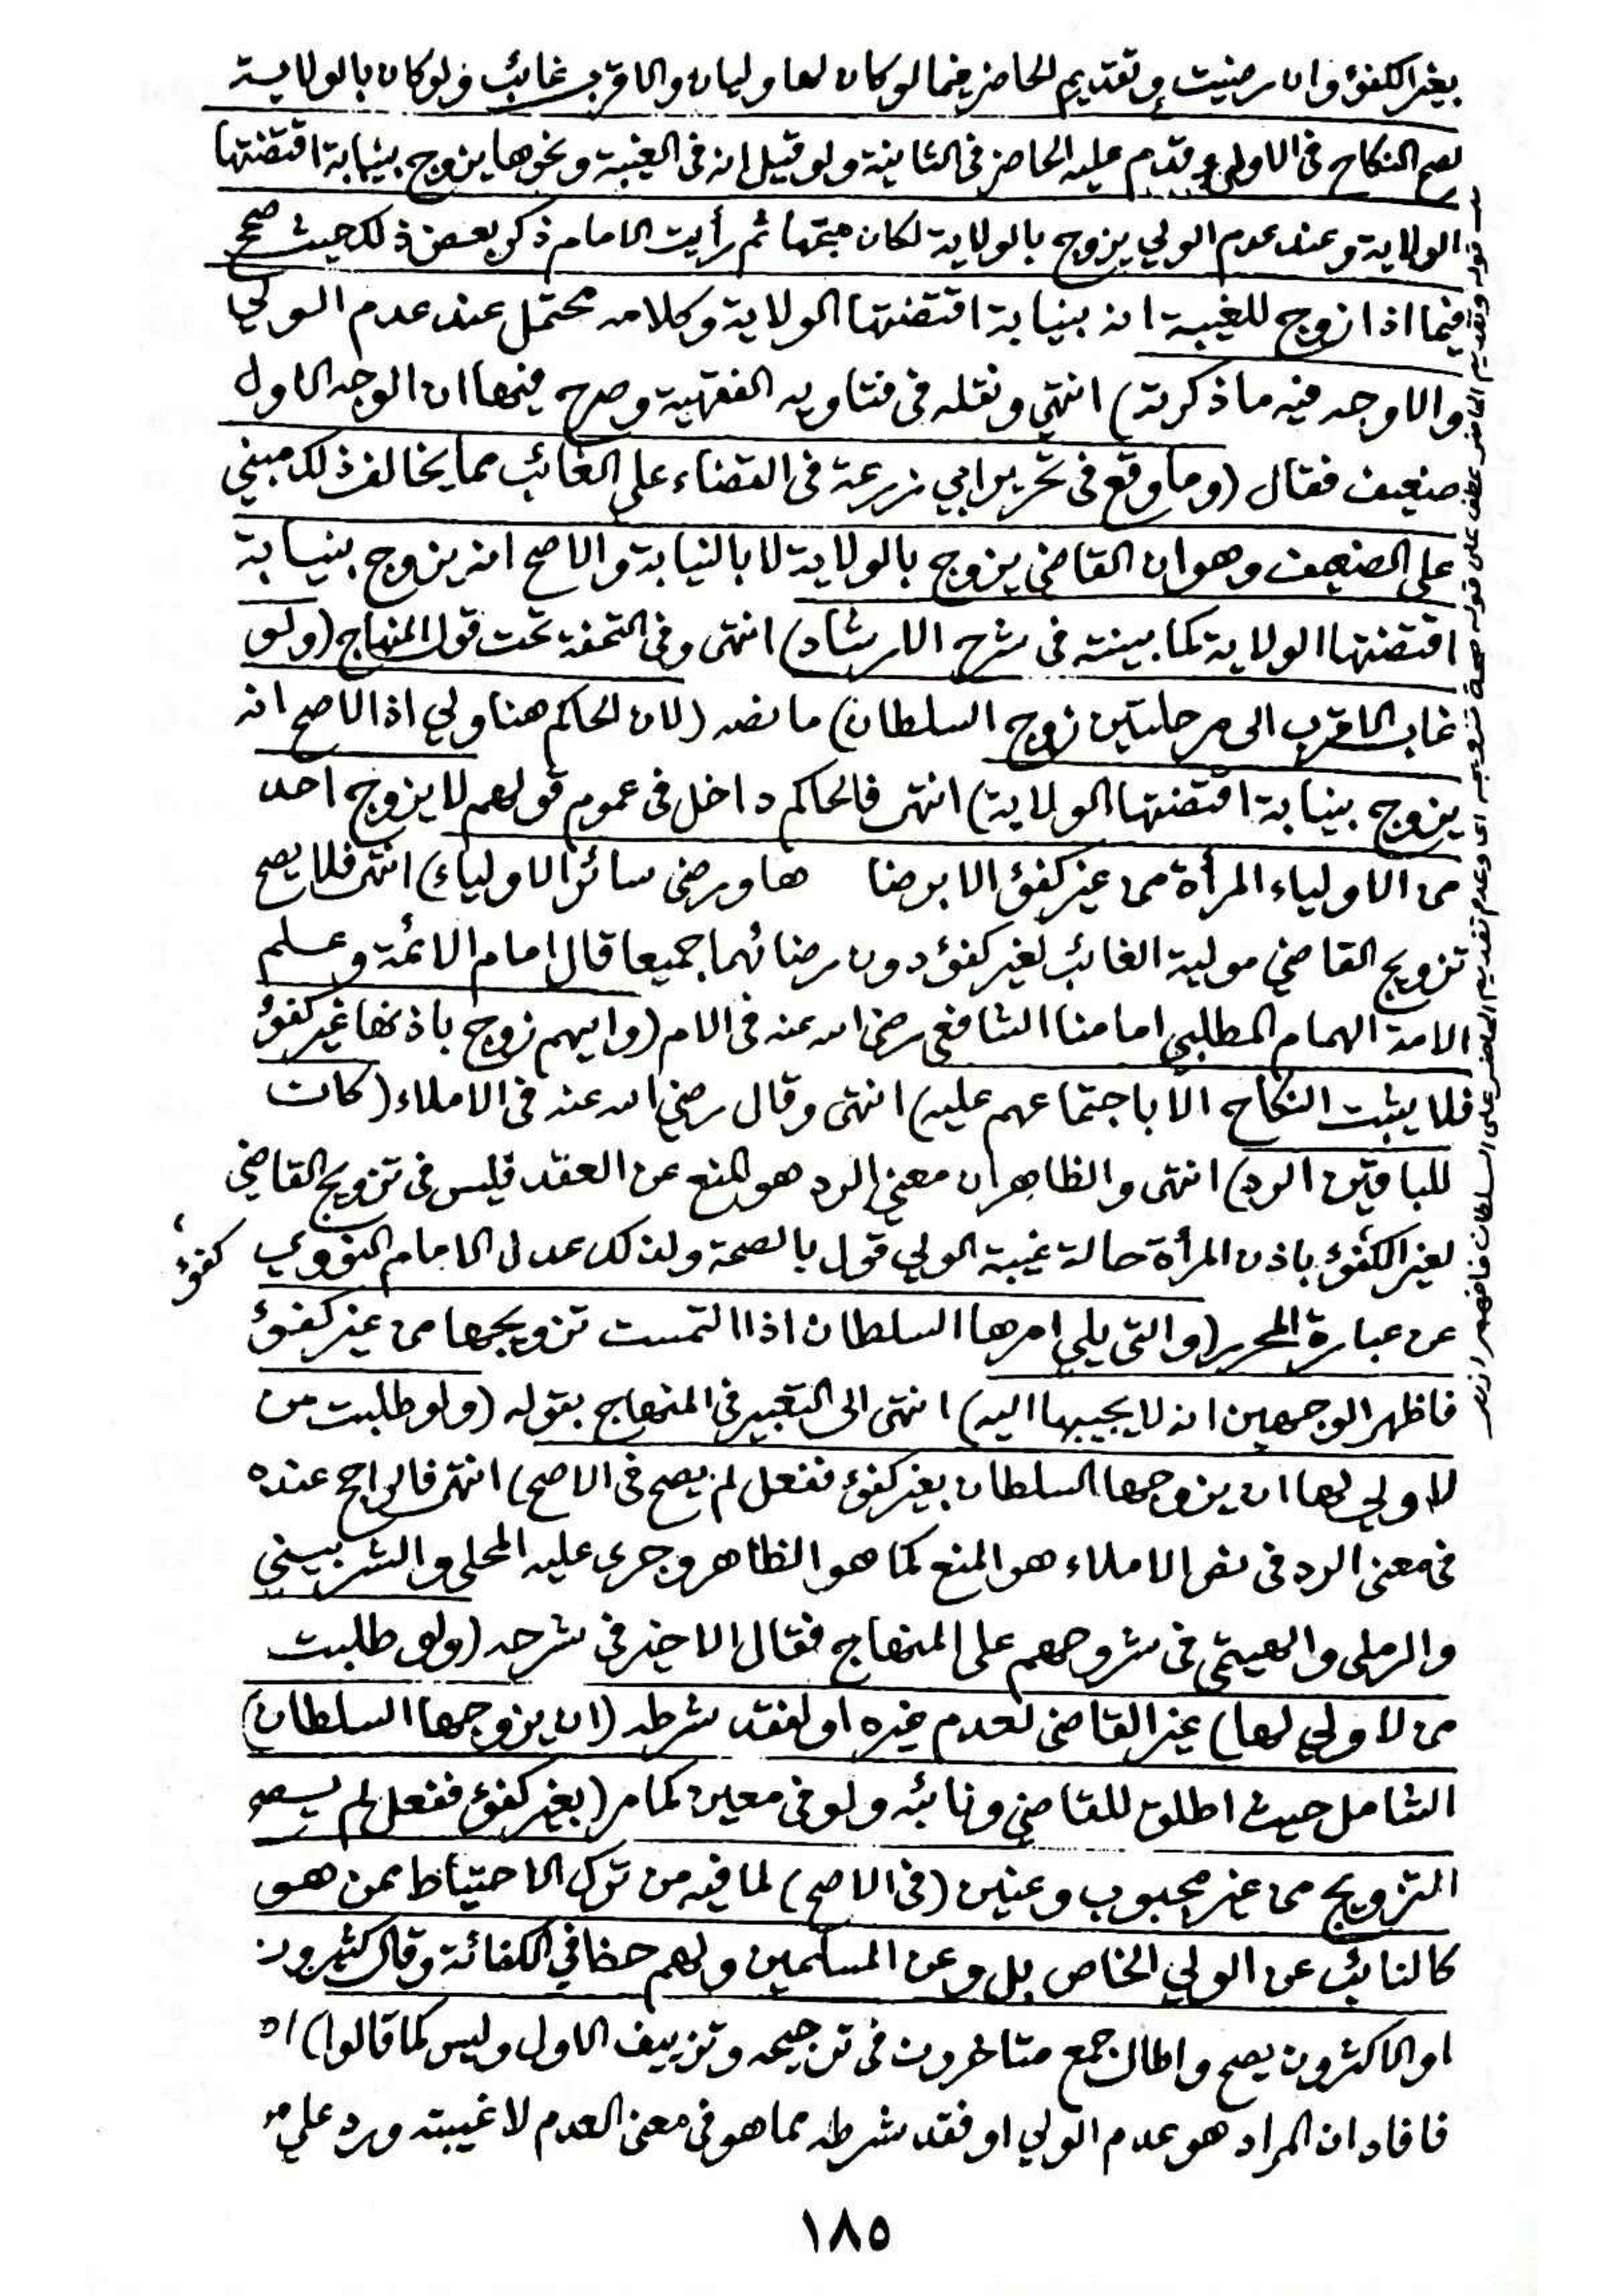 بغير الكفؤ وان رضيت وتقديم الحاضر فيما لو كان لها وليان والاقرب غائب ولو كان بالولاية
لصح النكاح فى الاولى وقدم عليه الحاضر فى الثانية ولو قيل انه فى الغيبة ونحوها يزوج بنيابة اقتضتها
الولاية وعند عدم الولي يزوج بالولاية لكان متجها ثم رأيت الامام ذكر بعض ذلك حيث صحح
فيما اذا زوج للغيبة انه بنيابة اقتضتها الولاية وكلامه محتمل عند عدم الولي
والاوجه فيه ما ذكرته) انتهى ونقله فى فتاويه الفقهية وصرح فيها ان الوجه الاول
ضعيف فقال (وما وقع فى تحرير ابي زرعة فى القضاء على الغائب مما يخالف ذلك مبني
على الضعيف وهو ان القاضي يزوج بالولاية لا بالنيابة والاصح انه يزوج بنيابة
اقتضتها الولاية كما بينته فى شرح الارشاد) انتهى وفى التحفة تحت قول المنهاج (ولو
غاب الاقرب الى مرحلتين زوج السلطان) ما نصه (لان الحاكم هنا ولي اذ الاصح انه
يزوج بنيابة اقتضتها الولاية) انتهى فالحاكم داخل فى عموم قولهم لا يزوج احد
من الاولياء المرأة من غير كفؤ الا برضا ها ورضى سائر الاولياء) انتهى فلا يصح
تزويج القاضي مولية الغائب لغير كفؤ دون رضائهما جميعا قال امام الائمة وعلم
الامة الهمام المطلبي امامنا الشافعى رضى الله عنه فى الام (وايهم زوج باذنها غير كفؤ
فلا يثبت النكاح الا باجتماعهم عليه) انتهى وقال رضي الله عنه فى الاملاء (كان
للباقين الرد) انتهى والظاهر ان معنى الرد هو المنع عن العقد فليس فى تزويج القاضي
لغير الكفؤ باذن المرأة حالة غيبة الولي قول بالصحة ولذلك عدل الامام النووي
كفؤ
عن عبارة المحرر (والتى يلي امرها السلطان اذا التمست تزويجها من غير كفؤ
فاظهر الوجهين انه لا يجيبها اليه) انتهى الى التعبير فى المنهاج بقوله (ولو طلبت من
لا ولي لها ان يزوجها السلطان بغير كفؤ ففعل لم يصح فى الاصح) انتهى فالراجح عنده
فى معنى الرد فى نص الاملاء هو المنع كما هو الظاهر وجرى عليه المحلى والشربيني
والرملى والهيتمى فى شروحهم على المنهاج فقال الاخير فى شرحه (ولو طلبت
من لا ولي لها) غير القاضى لعدم غيره او لفقد شرطه (ان يزوجها السلطان)
الشامل حيث اطلق للقاضي ونائبه ولو فى معين كما مر (بغير كفؤ ففعل لم يصح
التزويج من غير مجبوب وعنين (فى الاصح) لما فيه من ترك الاحتياط ممن هو
كالنائب عن الولي الخاص بل وعن المسلمين ولهم حظا في الكفائة وقال كثيرون
او الاكثرون يصح واطال جمع متاخرون فى ترجيحه وتزييف الاول وليس كما قالوا) اه
فافاد ان المراد هو عدم الولي او فقد شرطه مما هو فى معنى العدم لا غيبته ورد على
قوله وتقديم الحاضر عطف على قوله صحة تزويجه اى وعدم تقديم الحاضر على السلطان فافهم
١٨٥